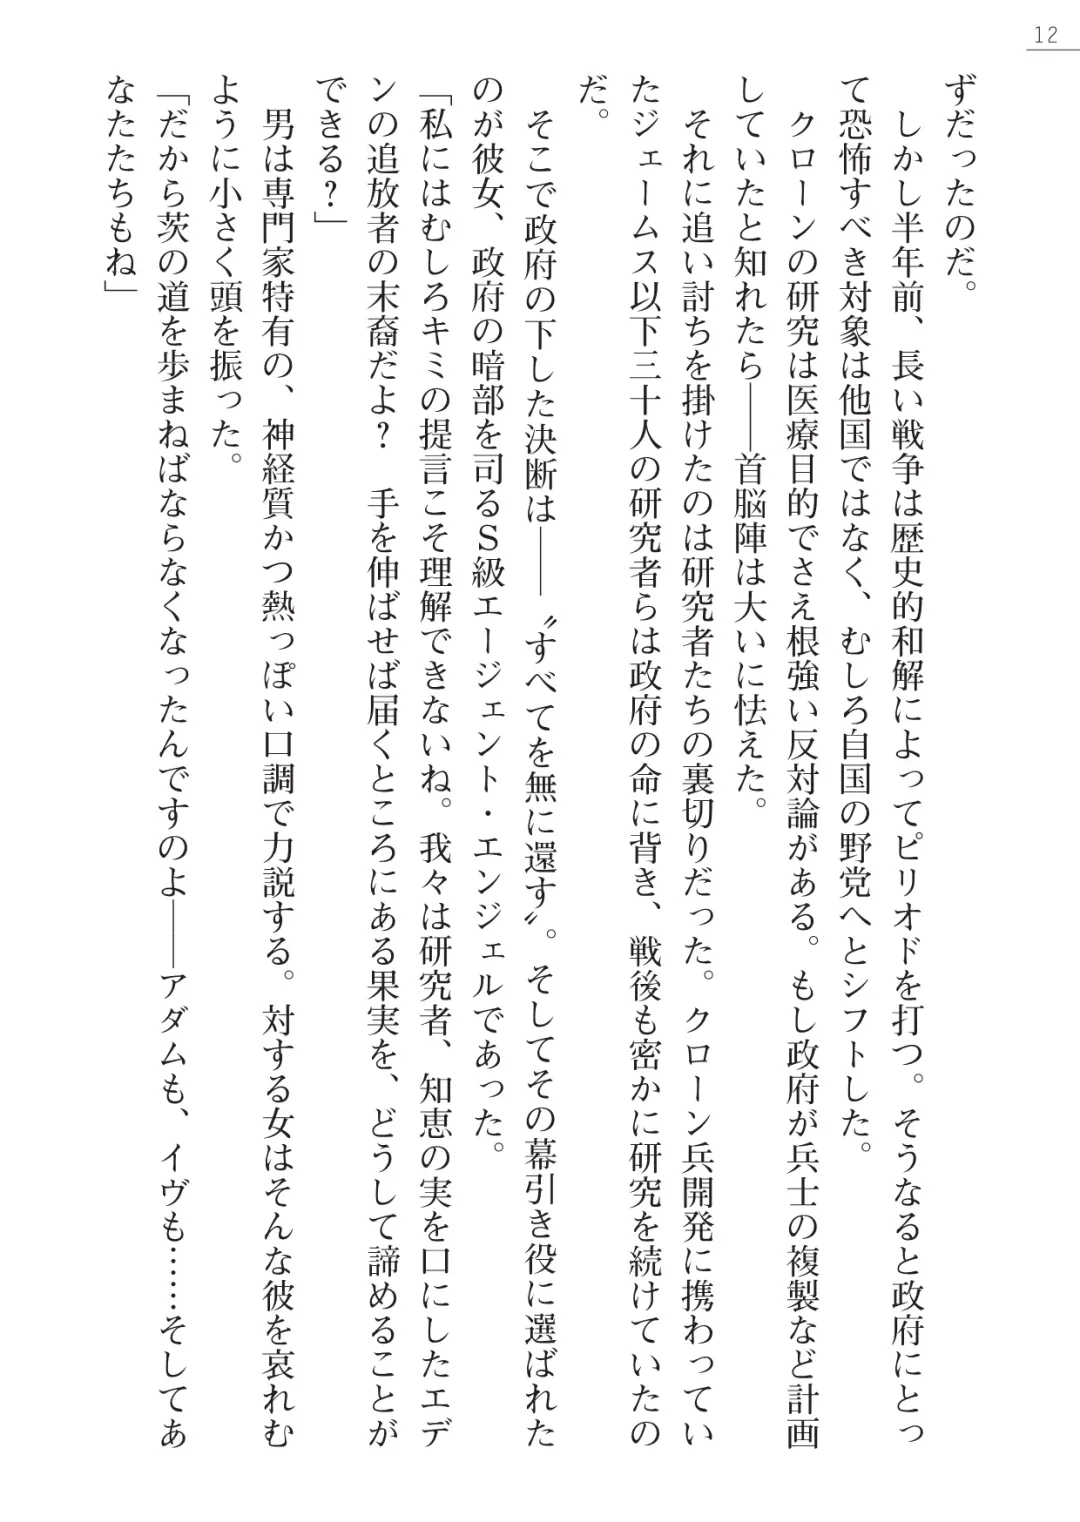 12
ずだったのだ。
　しかし半年前、長い戦争は歴史的和解によってピリオドを打つ。そうなると政府にとっ
て恐怖すべき対象は他国ではなく、むしろ自国の野党へとシフトした。
　クローンの研究は医療目的でさえ根強い反対論がある。もし政府が兵士の複製など計画
していたと知れたら――首脳陣は大いに怯えた。
　それに追い討ちを掛けたのは研究者たちの裏切りだった。クローン兵開発に携わってい
たジェームス以下三十人の研究者らは政府の命に背き、戦後も密かに研究を続けていたの
だ。
　そこで政府の下した決断は――〝すべてを無に還す〟。そしてその幕引き役に選ばれた
のが彼女、政府の暗部を司るＳ級エージェント・エンジェルであった。
「私にはむしろキミの提言こそ理解できないね。我々は研究者、知恵の実を口にしたエデ
ンの追放者の末裔だよ？　手を伸ばせば届くところにある果実を、どうして諦めることが
できる？」
　男は専門家特有の、神経質かつ熱っぽい口調で力説する。対する女はそんな彼を哀れむ
ように小さく頭を振った。
「だから茨の道を歩まねばならなくなったんですのよ――アダムも、イヴも……そしてあ
なたたちもね」